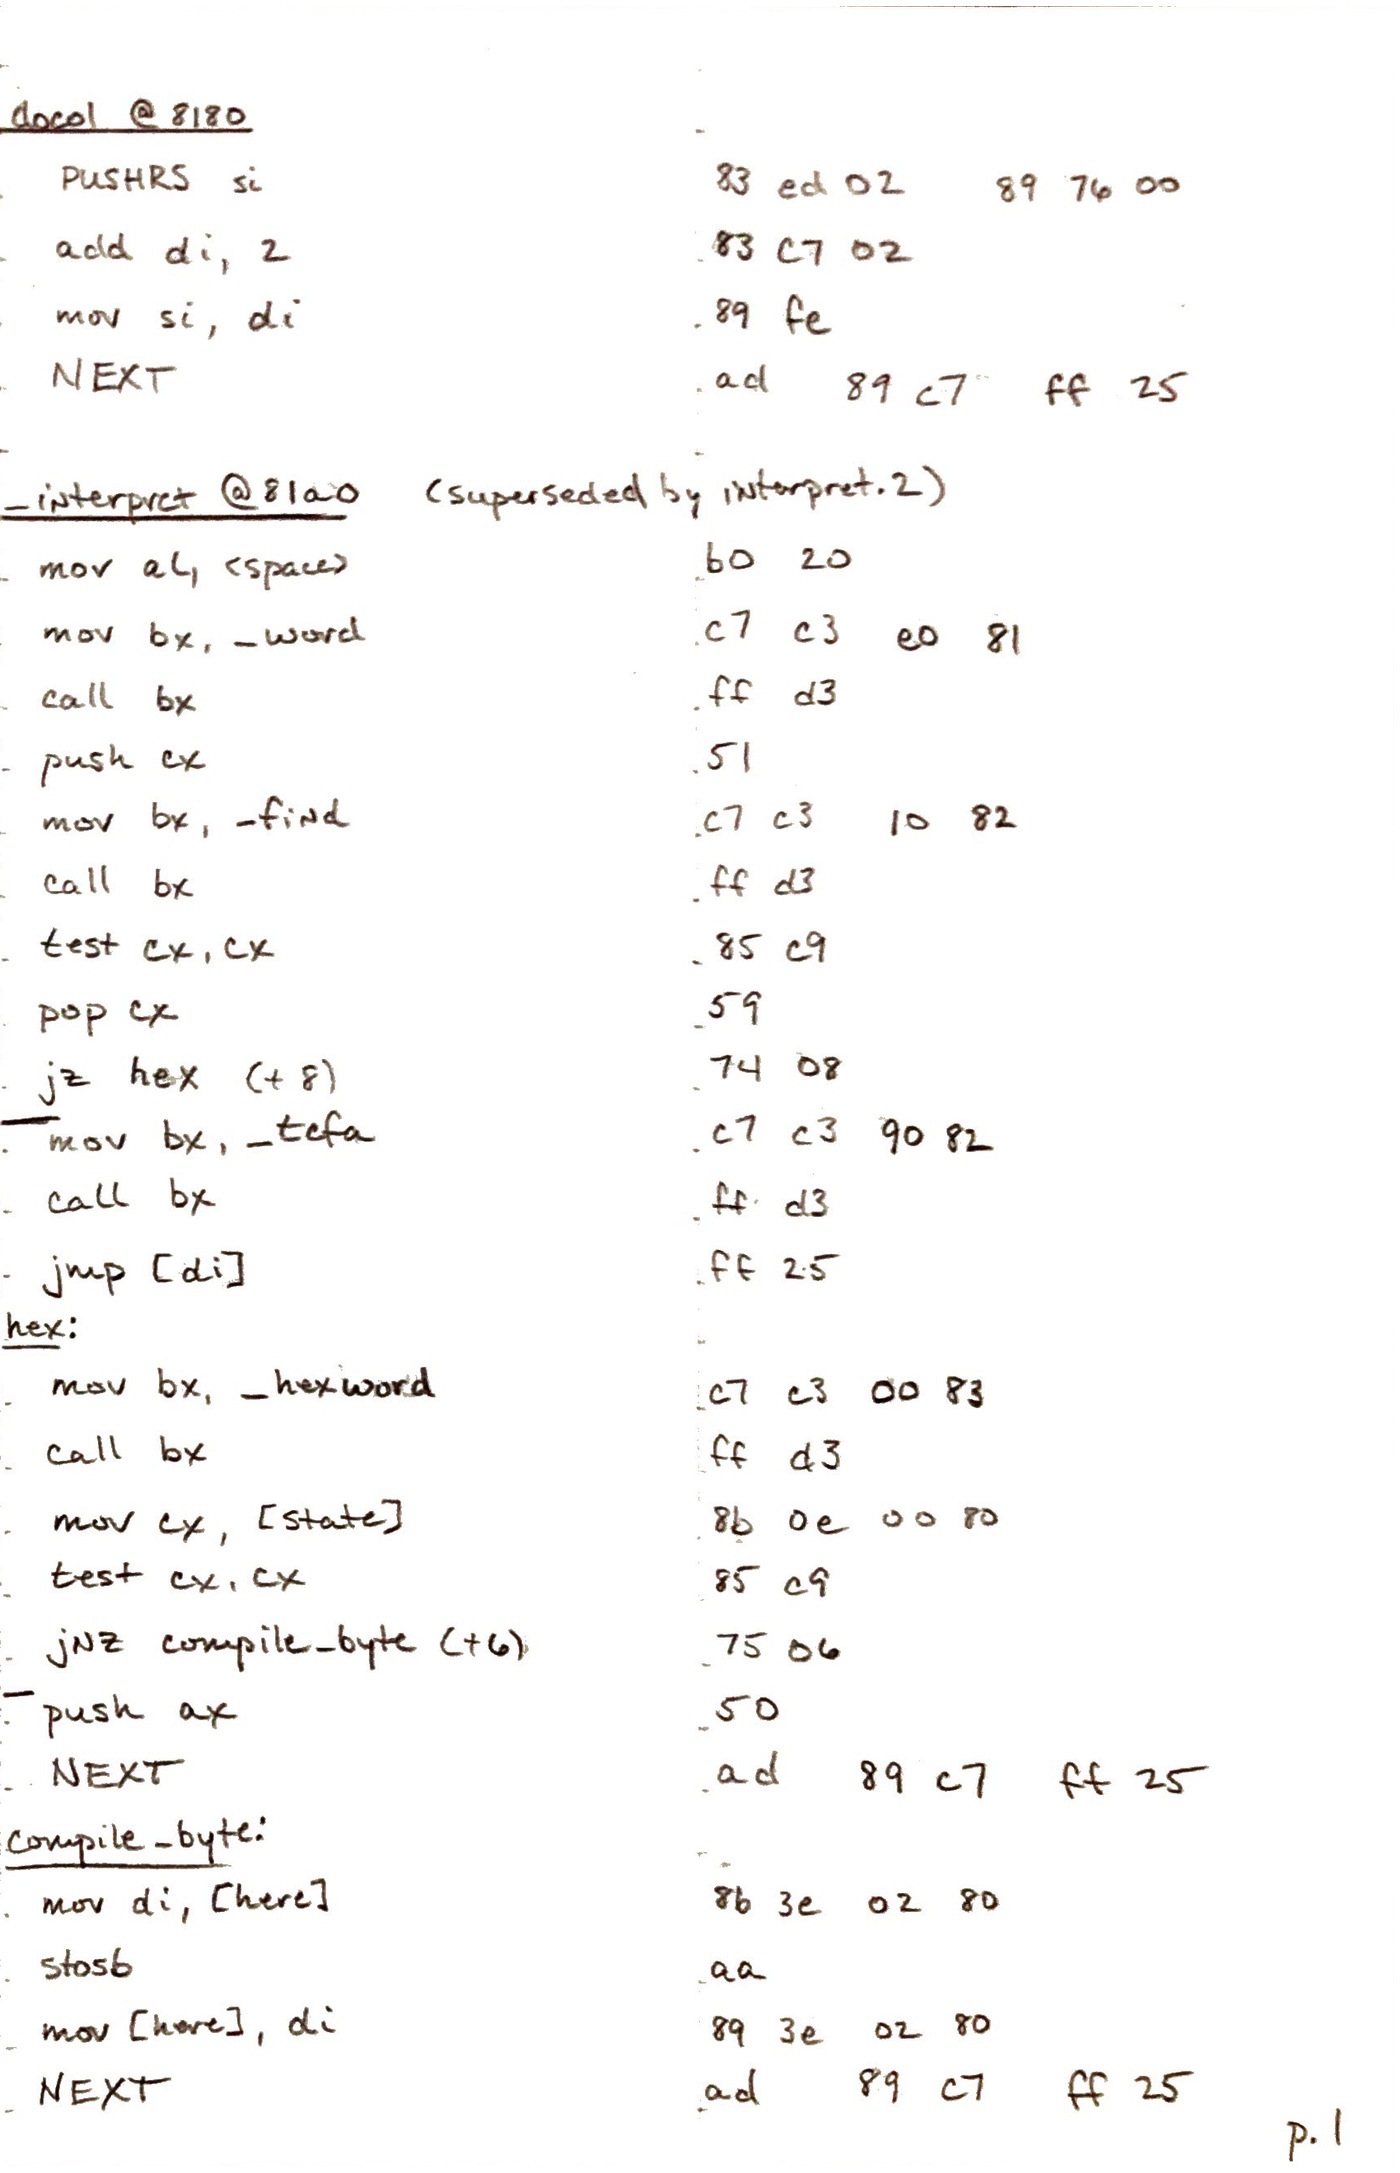 docol @ 8180
PUSHRS si 83 ed 02 89 76 00
add di, 2 83 c7 02
mov si, di 89 fe
NEXT ad 89 c7 ff 25
_interpret @ 81a0 (superseded by interpret.2)
mov al, <space> b0 20
mov bx, _word c7 c3 e0 81
call bx ff d3
push cx 51
mov bx, _find c7 c3 10 82
call bx ff d3
test cx, cx 85 c9
pop cx 59
jz hex (+8) 74 08
mov bx, _tcfa c7 c3 90 82
call bx ff d3
jmp [di] ff 25
hex:
mov bx, _hexword c7 c3 00 83
call bx ff d3
mov cx, [state] 8b 0e 00 80
test cx, cx 85 c9
jNZ compile_byte (+6) 75 06
push ax 50
NEXT ad 89 c7 ff 25
compile_byte:
mov di, [here] 8b 3e 02 80
stosb aa
mov [here], di 89 3e 02 80
NEXT ad 89 c7 ff 25
p. 1